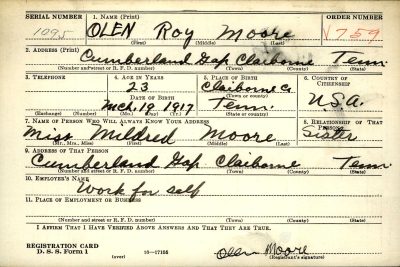 SERIAL NUMBER 1. NAME (Print) ORDER NUMBER
1095 OLEN Roy Moore V759
(First) (Middle) (Last)
2. ADDRESS (Print)
Cumberland Gap Claiborne Tenn.
(Number and street or R. F. D. number) (Town) (County) (State)
3. TELEPHONE 4. AGE IN YEARS 5. PLACE OF BIRTH 6. COUNTRY OF CITIZENSHIP
23 Claiborne Co
DATE OF BIRTH (Town or county)
Mch. 19 1917 Tenn. U.S.A.
(Exchange) (Number) (Mo.) (Day) (Yr.) (State or country)
7. NAME OF PERSON WHO WILL ALWAYS KNOW YOUR ADDRESS 8. RELATIONSHIP OF THAT PERSON
Miss Mildred Moore Sister
(Mr., Mrs., Miss) (First) (Middle) (Last)
9. ADDRESS OF THAT PERSON
Cumberland Gap Claiborne Tenn.
(Number and street or R. F. D. number) (Town) (County) (State)
10. EMPLOYER'S NAME
Work for self
11. PLACE OF EMPLOYMENT OR BUSINESS
(Number and street or R. F. D. number) (Town) (County) (State)
I AFFIRM THAT I HAVE VERIFIED ABOVE ANSWERS AND THAT THEY ARE TRUE.
REGISTRATION CARD
D. S. S. Form 1 (over) 16—17105 Olen Moore
(Registrant's signature)